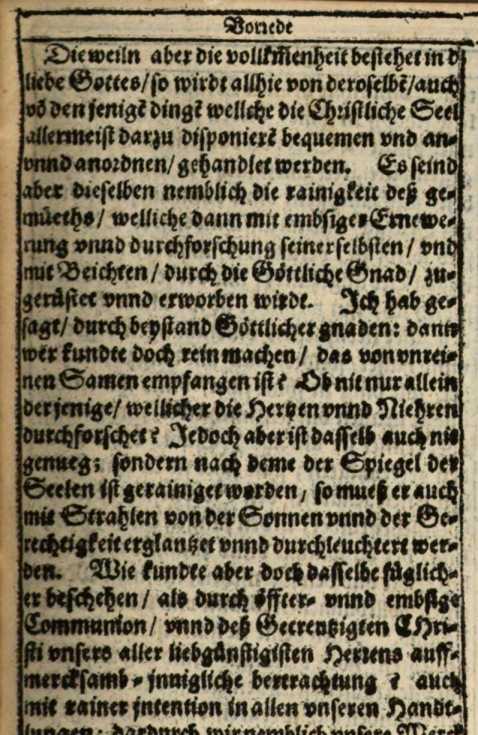 Vorrede
Die weiln aber die vollkm̃enheit bestehet in d̕
liebe Gottes/ so wirdt allhie von deroselbẽ/ auch
võ den jenigẽ dingẽ wellche die Christliche Seel
allermeist darzu disponierẽ bequemen vnd an-
vnnd anordnen/ gehandlet werden. Es seind
aber dieselben nemblich die rainigkeit deß ge-
müeths/ welliche dann mit embsiger Ernewe-
rung vnnd durchforschung seinerselbsten/ vnd
mit Beichten/ durch die Göttliche Gnad/ zu-
gerüstet vnnd erworben wirdt. Ich hab ge-
sagt/ durch beystand Göttlicher gnaden: dann
wer kundte doch rein machen/ das von vnrei-
nen Samen empfangen ist? Ob nit nur allein
derjenige/ wellicher die Hertzen vnnd Niehren
durchforschet? Jedoch aber ist dasselb auch nit
genueg; sondern nach deme der Spiegel der
Seelen ist gerainiget worden/ so mueß er auch
mit Strahlen von der Sonnen vnnd der Ge-
rechtigkeit erglantzet vnnd durchleuchtert wer-
den. Wie kundte aber doch dasselbe füglich-
er beschehen/ als durch öffter- vnnd embsige
Communion/ vnnd deß Gecreutzigten CHri-
sti vnsers aller liebgünstigisten Herrens auff-
mercksamb-jnnigliche betrachtung? auch
mit rainer jntention in allen vnseren Handt-
lungen: dardurch wir nemblich vnsere Werck